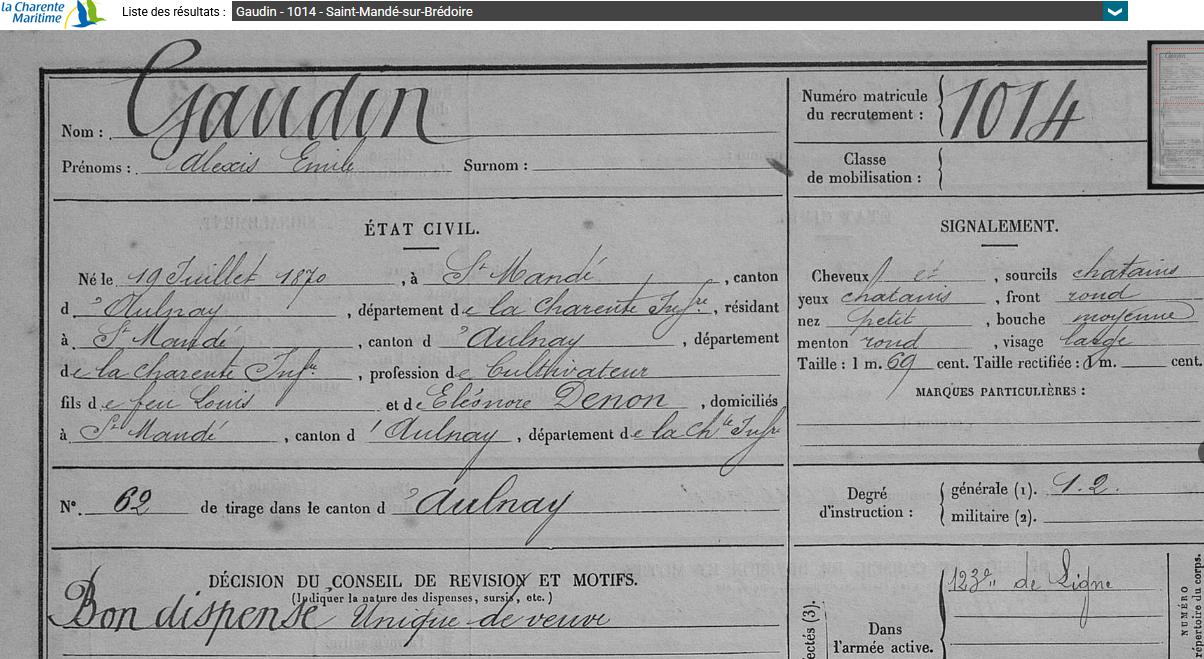 la Charente
Maritime
Liste des résultats : Gaudin - 1014 - Saint-Mandé-sur-Brédoire
Nom : Gaudin
Prénoms : Alexis Emile Surnom :
Numéro matricule
du recrutement : 1014
Classe
de mobilisation :
ÉTAT CIVIL.
Né le 19 Juillet 1870, à St Mandé, canton
d'Aulnay, département de la Charente Infre, résidant
à St Mandé, canton d'Aulnay, département
de la Charente Infre, profession de Cultivateur
fils de feu Louis et de Eléonore Denon, domiciliés
à St Mandé, canton d'Aulnay, département de la Chte Infre
SIGNALEMENT.
Cheveux et, sourcils chatains
yeux chatains, front rond
nez petit, bouche moyenne
menton rond, visage large
Taille : 1 m. 69 cent. Taille rectifiée : 1 m. cent.
MARQUES PARTICULIÈRES :
N° 62 de tirage dans le canton d'Aulnay
Degré
d'instruction :
générale (1). 1.2.
militaire (2).
DÉCISION DU CONSEIL DE REVISION ET MOTIFS.
(Indiquer la nature des dispenses, sursis, etc.)
Bon dispensé Unique de veuve
ectés (3).
Dans
l'armée active.
123e de Ligne
NUMÉRO
répertoire du corps.